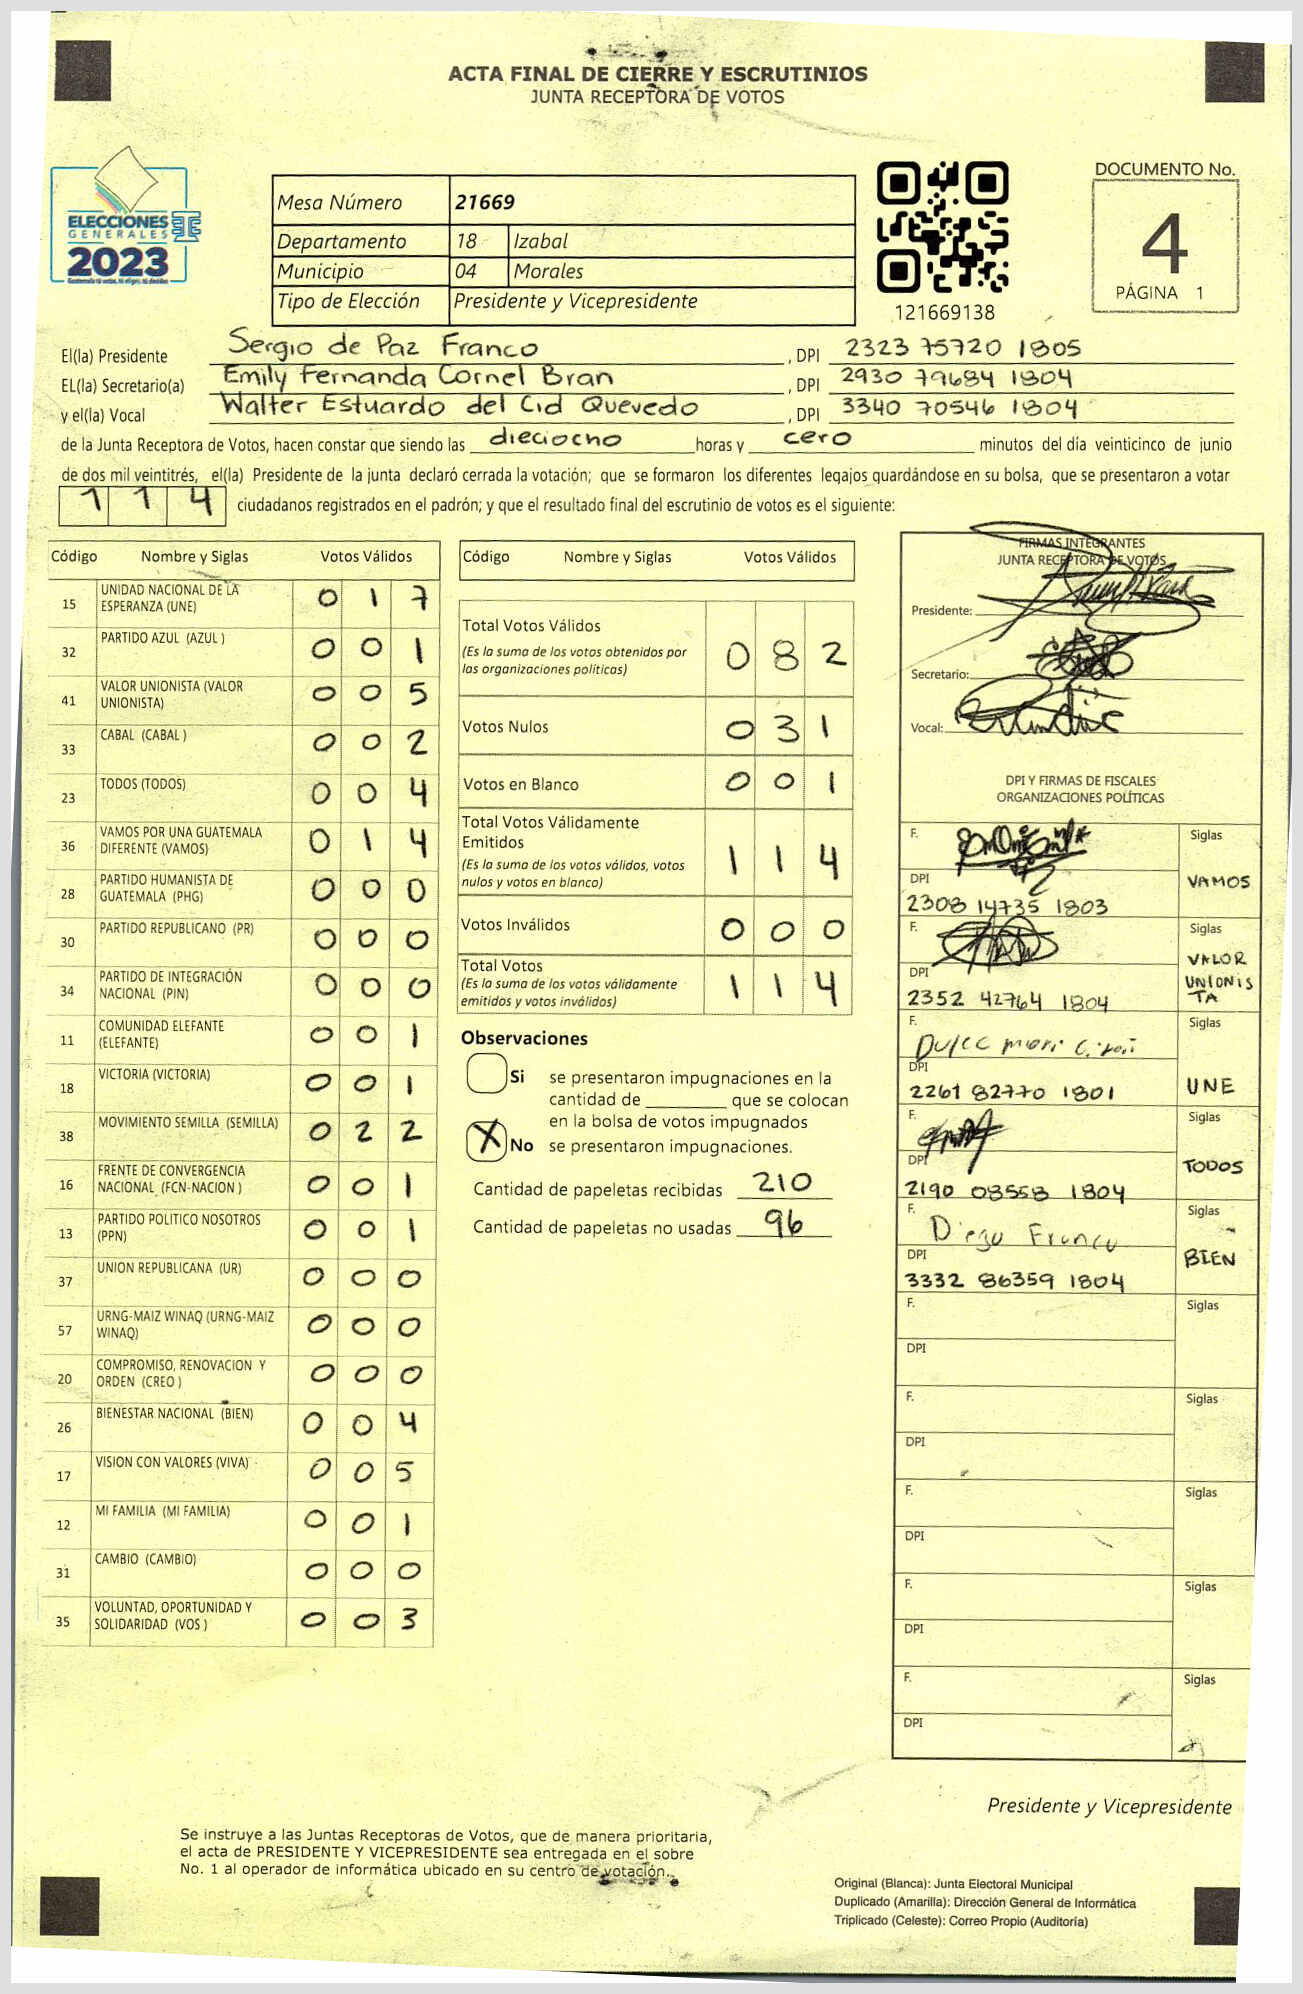 ACTA FINAL DE CIERRE Y ESCRUTINIOS
JUNTA RECEPTORA DE VOTOS
ELECCIONES
GENERALES
2023
Mesa Número 21669
Departamento 18 Izabal
Municipio 04 Morales
Tipo de Elección Presidente y Vicepresidente
121669138
DOCUMENTO No.
4
PÁGINA 1
El(la) Presidente Sergio de Paz Franco , DPI 2323 75720 1805
EL(la) Secretario(a) Emily Fernanda Cornel Bran , DPI 2930 79684 1804
y el(la) Vocal Walter Estuardo del Cid Quevedo , DPI 3340 70546 1804
de la Junta Receptora de Votos, hacen constar que siendo las dieciocho horas y cero minutos del día veinticinco de junio
de dos mil veintitrés, el(la) Presidente de la junta declaró cerrada la votación; que se formaron los diferentes legajos guardándose en su bolsa, que se presentaron a votar
114 ciudadanos registrados en el padrón; y que el resultado final del escrutinio de votos es el siguiente:
Código Nombre y Siglas Votos Válidos
15 UNIDAD NACIONAL DE LA ESPERANZA (UNE) 0 1 7
32 PARTIDO AZUL (AZUL ) 0 0 1
41 VALOR UNIONISTA (VALOR UNIONISTA) 0 0 5
33 CABAL (CABAL ) 0 0 2
23 TODOS (TODOS) 0 0 4
36 VAMOS POR UNA GUATEMALA DIFERENTE (VAMOS) 0 1 4
28 PARTIDO HUMANISTA DE GUATEMALA (PHG) 0 0 0
30 PARTIDO REPUBLICANO (PR) 0 0 0
34 PARTIDO DE INTEGRACIÓN NACIONAL (PIN) 0 0 0
11 COMUNIDAD ELEFANTE (ELEFANTE) 0 0 1
18 VICTORIA (VICTORIA) 0 0 1
38 MOVIMIENTO SEMILLA (SEMILLA) 0 2 2
16 FRENTE DE CONVERGENCIA NACIONAL (FCN-NACION ) 0 0 1
13 PARTIDO POLITICO NOSOTROS (PPN) 0 0 1
37 UNION REPUBLICANA (UR) 0 0 0
57 URNG-MAIZ WINAQ (URNG-MAIZ WINAQ) 0 0 0
20 COMPROMISO, RENOVACION Y ORDEN (CREO ) 0 0 0
26 BIENESTAR NACIONAL (BIEN) 0 0 4
17 VISION CON VALORES (VIVA) 0 0 5
12 MI FAMILIA (MI FAMILIA) 0 0 1
31 CAMBIO (CAMBIO) 0 0 0
35 VOLUNTAD, OPORTUNIDAD Y SOLIDARIDAD (VOS ) 0 0 3
Código Nombre y Siglas Votos Válidos
Total Votos Válidos 0 8 2
(Es la suma de los votos obtenidos por
las organizaciones políticas)
Votos Nulos 0 3 1
Votos en Blanco 0 0 1
Total Votos Válidamente
Emitidos 1 1 4
(Es la suma de los votos válidos, votos
nulos y votos en blanco)
Votos Inválidos 0 0 0
Total Votos 1 1 4
(Es la suma de los votos válidamente
emitidos y votos inválidos)
Observaciones
Si se presentaron impugnaciones en la
cantidad de ________ que se colocan
en la bolsa de votos impugnados
X No se presentaron impugnaciones.
Cantidad de papeletas recibidas 210
Cantidad de papeletas no usadas 96
FIRMAS INTEGRANTES
JUNTA RECEPTORA DE VOTOS
Presidente:
Secretario:
Vocal:
DPI Y FIRMAS DE FISCALES
ORGANIZACIONES POLÍTICAS
F. Siglas
DPI VAMOS
2308 14735 1803
F. Siglas
DPI VALOR UNIONISTA
2352 42764 1804
F. Siglas
DPI UNE
2261 82770 1801
F. Siglas
DPI TODOS
2190 08558 1804
F. Diego Franco Siglas
DPI BIEN
3332 86359 1804
F. Siglas
DPI
F. Siglas
DPI
F. Siglas
DPI
F. Siglas
DPI
F. Siglas
DPI
Presidente y Vicepresidente
Se instruye a las Juntas Receptoras de Votos, que de manera prioritaria,
el acta de PRESIDENTE Y VICEPRESIDENTE sea entregada en el sobre
No. 1 al operador de informática ubicado en su centro de votación.
Original (Blanca): Junta Electoral Municipal
Duplicado (Amarilla): Dirección General de Informática
Triplicado (Celeste): Correo Propio (Auditoría)